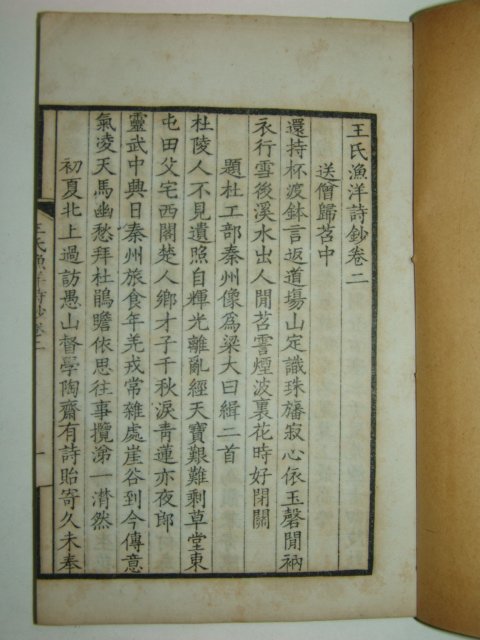 王氏漁洋詩鈔卷二
送僧歸苕中
還持杯渡鉢言返道場山定識珠旛寂心依玉磬聞衲
衣行雪後溪水出人閒苕霅煙波裏花時好閉關
題杜工部秦州像爲梁大曰緝二首
杜陵人不見遺照自輝光離亂經天寶艱難剩草堂東
屯田父宅西閣楚人鄉才子千秋淚靑蓮亦夜郎
靈武中興日秦州旅食年羌戎常雜處崖谷到今傳意
氣凌天馬幽愁拜杜鵑瞻依思往事攬涕一潸然
初夏北上過訪愚山督學陶齋有詩貽寄久未奉
王氏漁洋詩鈔卷二
一